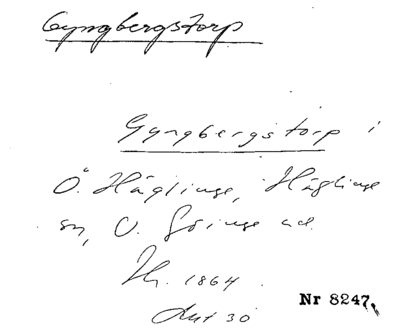 Gyngbergstorp
Gyngbergstorp i
Ö. Häglinge, Häglinge
sn, V. Göinge hd.
Hr. 1864
Lmt 30
Nr 8247.